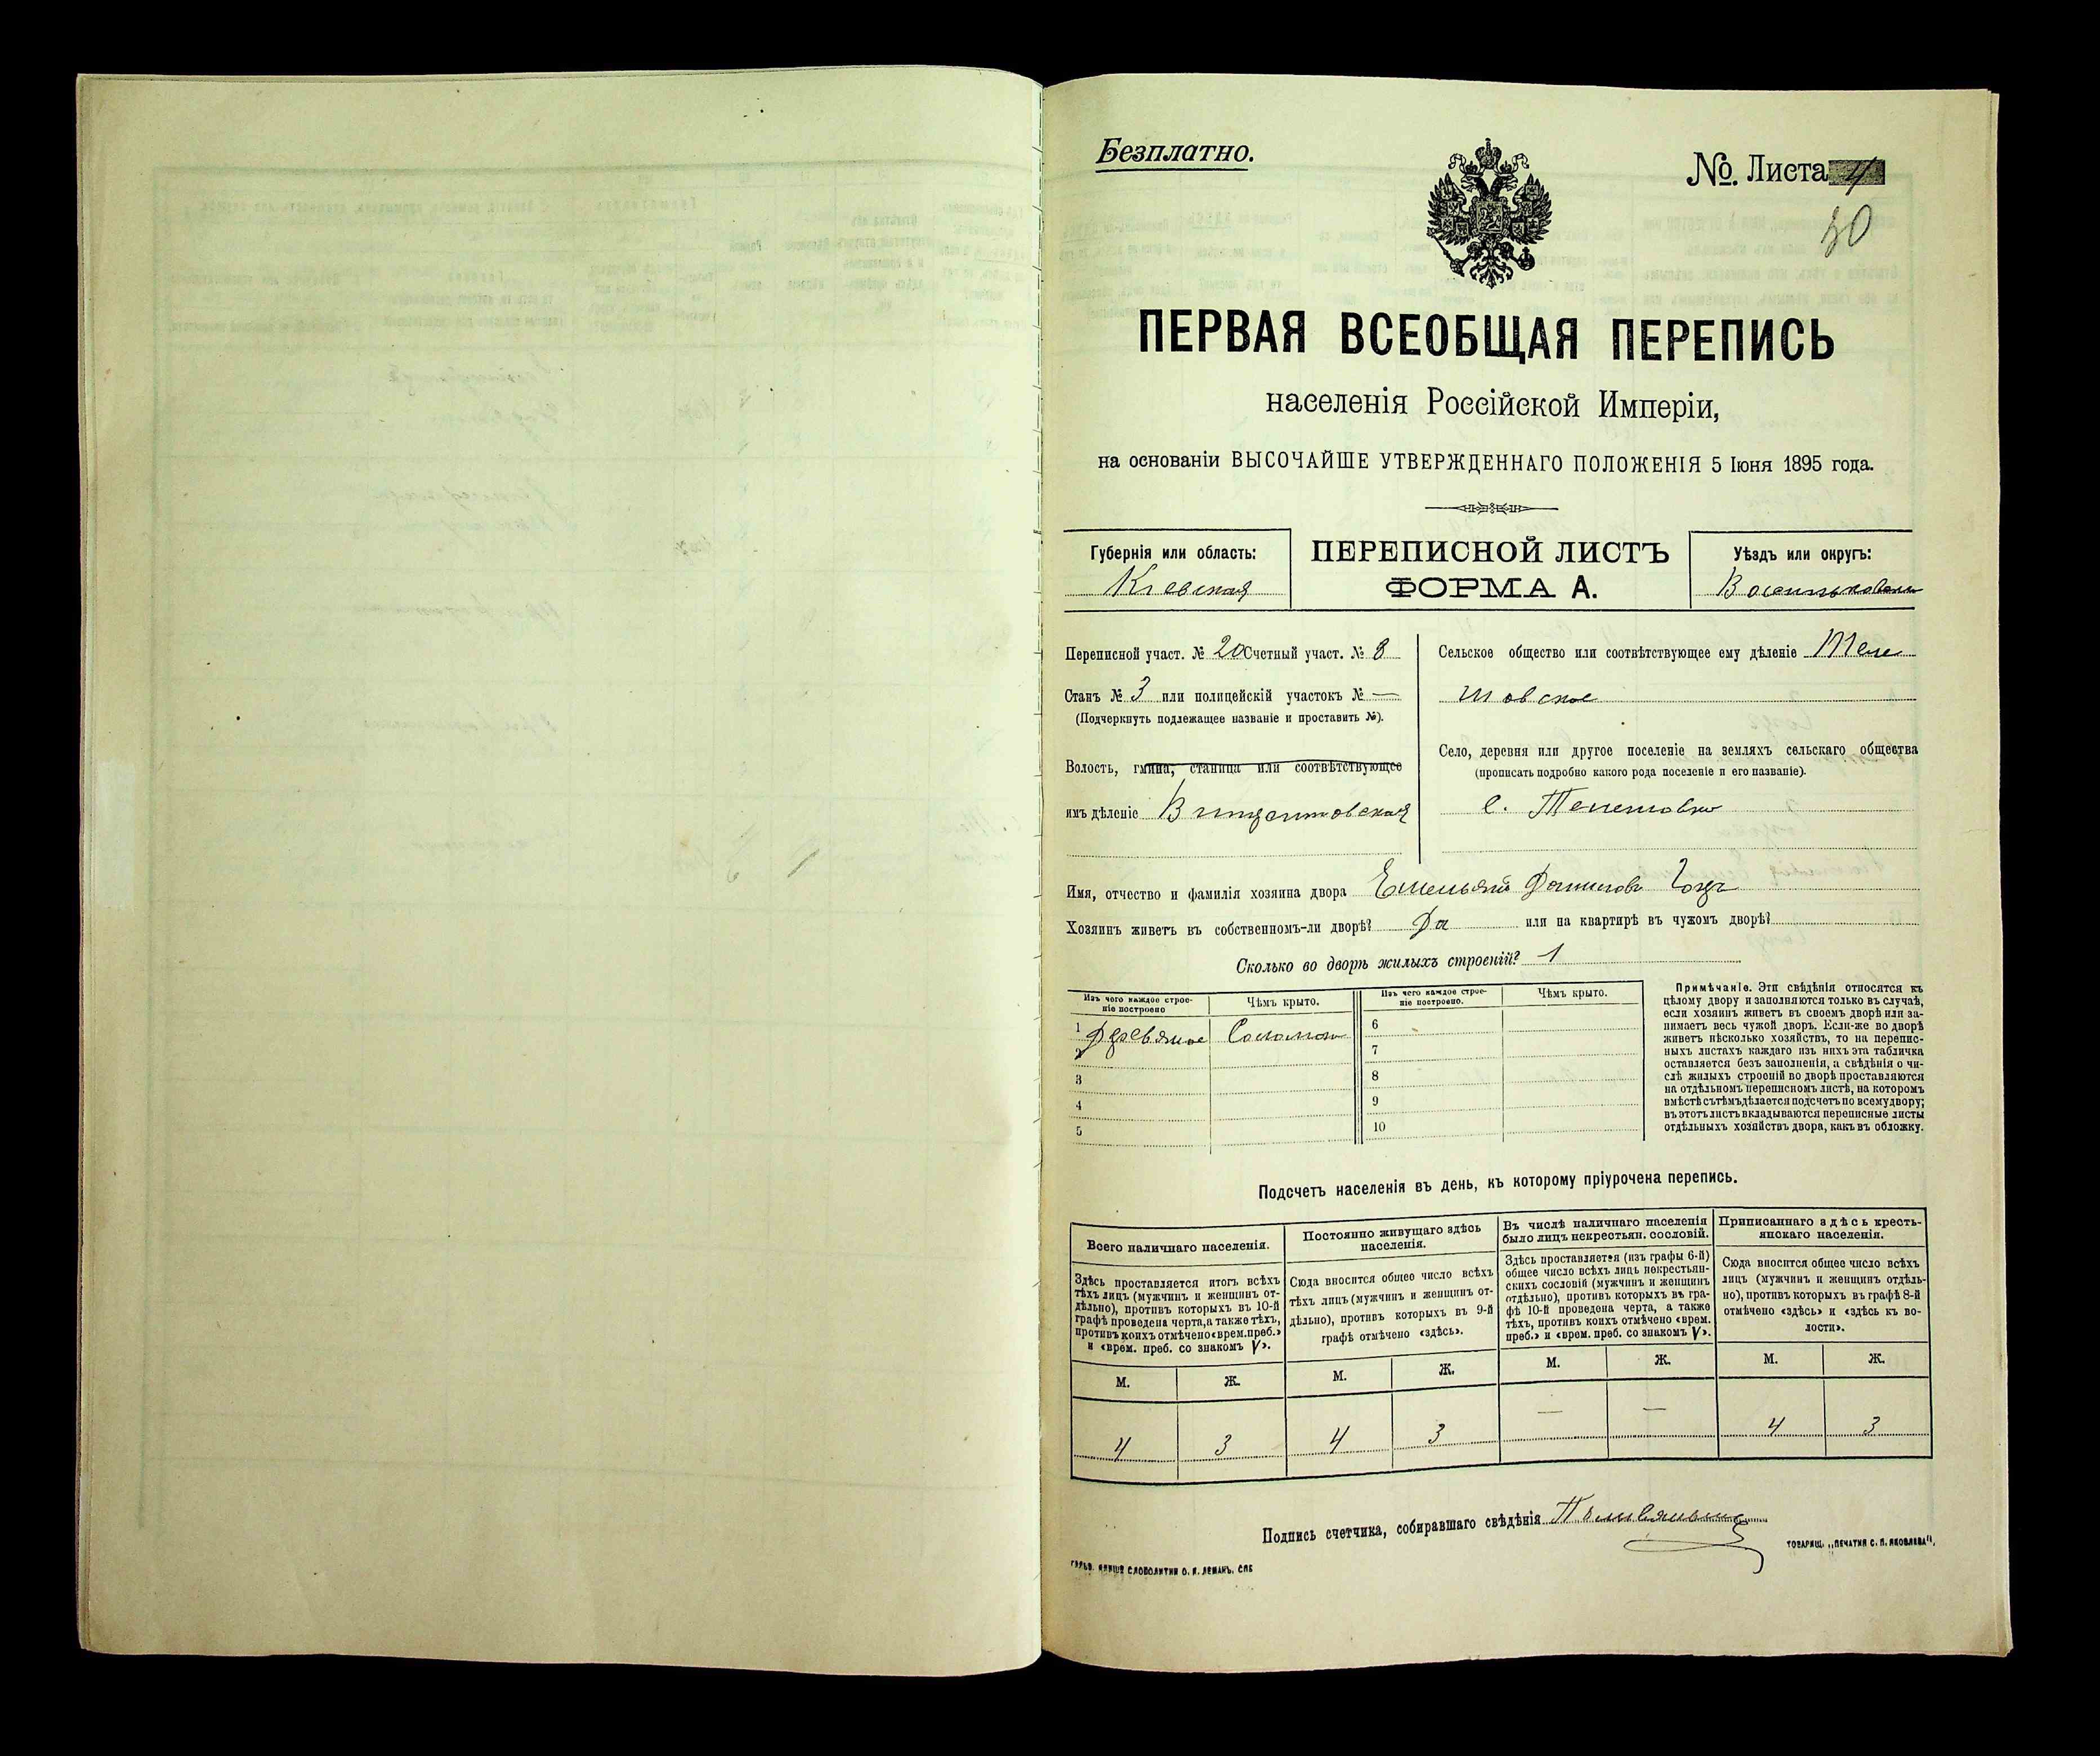 Безплатно.
№. Листа 4
30
ПЕРВАЯ ВСЕОБЩАЯ ПЕРЕПИСЬ
населенія Россійской Имперіи,
на основаніи ВЫСОЧАЙШЕ УТВЕРЖДЕННАГО ПОЛОЖЕНІЯ 5 Іюня 1895 года.
Губернія или область:
Кіевская
ПЕРЕПИСНОЙ ЛИСТЪ
ФОРМА А.
Уѣздъ или округъ:
Переписной участ. № 20 Счетный участ. № 8
Станъ № 3 или полицейскій участокъ № —
(Подчеркнуть подлежащее названіе и проставить №).
Волость, гмина, станица или соотвѣтствующее
имъ дѣленіе
Сельское общество или соотвѣтствующее ему дѣленіе Теле
шовское
Село, деревня или другое поселеніе на земляхъ сельскаго общества
(прописать подробно какого рода поселеніе и его названіе).
с. Телешовка
Имя, отчество и фамилія хозяина двора Емельянъ Даниловъ
Хозяинъ живетъ въ собственномъ-ли дворѣ? Да или на квартирѣ въ чужомъ дворѣ?
Сколько во дворѣ жилыхъ строеній? 1
Изъ чего каждое строе-
ніе построено
Чѣмъ крыто.
Изъ чего каждое строе-
ніе построено.
Чѣмъ крыто.
1 Деревяное Соломою
2
3
4
5
6
7
8
9
10
Примѣчаніе. Эти свѣдѣнія относятся къ
цѣлому двору и заполняются только въ случаѣ,
если хозяинъ живетъ въ своемъ дворѣ или за-
нимаетъ весь чужой дворъ. Если-же во дворѣ
живетъ нѣсколько хозяйствъ, то на перепис-
ныхъ листахъ каждаго изъ нихъ эта табличка
оставляется безъ заполненія, а свѣдѣнія о чи-
слѣ жилыхъ строеній во дворѣ проставляются
на отдѣльномъ переписномъ листѣ, на которомъ
вмѣстѣ съ тѣмъ дѣлается подсчетъ по всему двору;
въ этотъ листъ вкладываются переписные листы
отдѣльныхъ хозяйствъ двора, какъ въ обложку.
Подсчетъ населенія въ день, къ которому пріурочена перепись.
Всего наличнаго населенія.
Здѣсь проставляется итогъ всѣхъ
тѣхъ лицъ (мужчинъ и женщинъ от-
дѣльно), противъ которыхъ въ 10-й
графѣ проведена черта, а также тѣхъ,
противъ коихъ отмѣчено «врем. преб.»
и «врем. преб. со знакомъ V».
Постоянно живущаго здѣсь
населенія.
Сюда вносится общее число всѣхъ
тѣхъ лицъ (мужчинъ и женщинъ от-
дѣльно), противъ которыхъ въ 9-й
графѣ отмѣчено «здѣсь».
Въ числѣ наличнаго населенія
было лицъ некрестьян. сословій.
Здѣсь проставляется (изъ графы 6-й)
общее число всѣхъ лицъ некрестьян-
скихъ сословій (мужчинъ и женщинъ
отдѣльно), противъ которыхъ въ гра-
фѣ 10-й проведена черта, а также
тѣхъ, противъ коихъ отмѣчено «врем.
преб.» и «врем. преб. со знакомъ V».
Приписаннаго здѣсь кресть-
янскаго населенія.
Сюда вносится общее число всѣхъ
лицъ (мужчинъ и женщинъ отдѣль-
но), противъ которыхъ въ графѣ 8-й
отмѣчено «здѣсь» и «здѣсь къ во-
лости».
М. Ж. М. Ж. М. Ж. М. Ж.
4 3 4 3 — — 4 3
Подпись счетчика, собиравшаго свѣдѣнія
ТОВАРИЩ. „ПЕЧАТНЯ С. П. ЯКОВЛЕВА“.
СЛОВОЛИТНИ О. И. ЛЕМАНЪ, СПБ